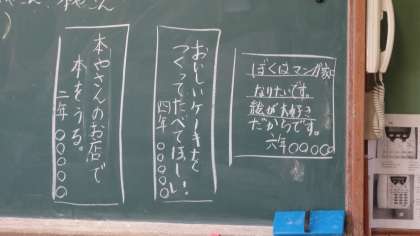 ぼくはマンガ家に
なりたいです。
絵がお好き
だからです。
六年〇〇〇〇
おいしいケーキを
つくってたべてほしい!
四年〇〇〇〇
本やさんのお店で
本をうる。
二年〇〇〇〇〇